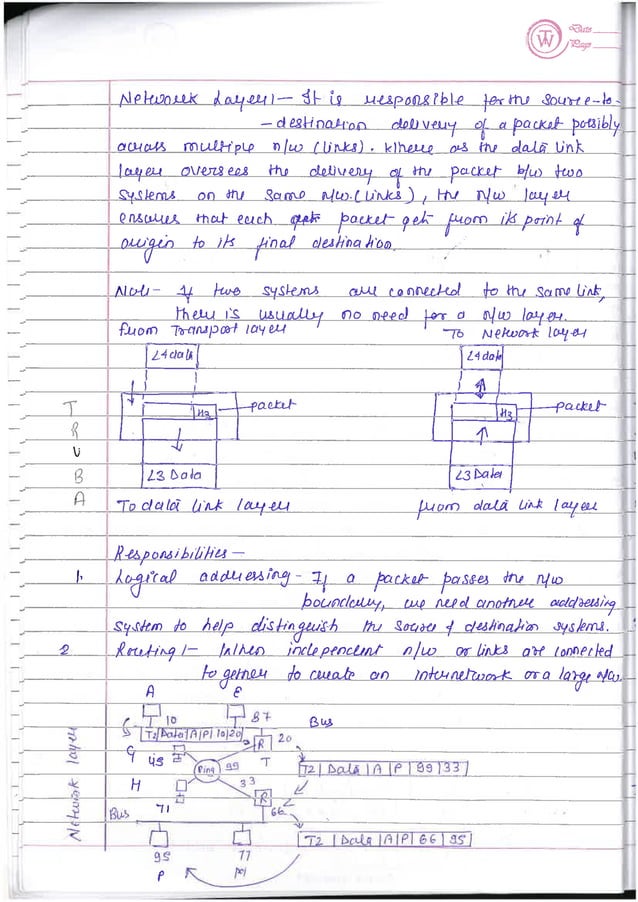 TW
Date
Page
Network Layer :- It is responsible for the source-to-
-destination delivery of a packet possibly
across multiple n/w (links). Where as the data link
layer oversees the delivery of the packet b/w two
systems on the same n/w.(links), the n/w layer
ensures that each packet gets from its point of
origin to its final destination.
Note - If two systems are connected to the same link,
there is usually no need for a n/w layer.
From Transport layer
To Network layer
L4 data
L4 data
H3
packet
H3
packet
L3 Data
L3 Data
To data link layer
from data link layer
T
R
U
B
A
Responsibilities -
1. Logical addressing - If a packet passes the n/w
boundary, we need another addressing
system to help distinguish the source & destination systems.
2 Routing :- When independent n/w or links are connected
together to create an internetwork or a large n/w.
Network layer
A
E
10
87
Bus
T2|Data|A|P|10|20
R
20
T
G
45
Ring
99
T2|Data|A|P|99|33
H
33
71
R
Bus
66
T2|Data|A|P|66|95
95
77
P
M